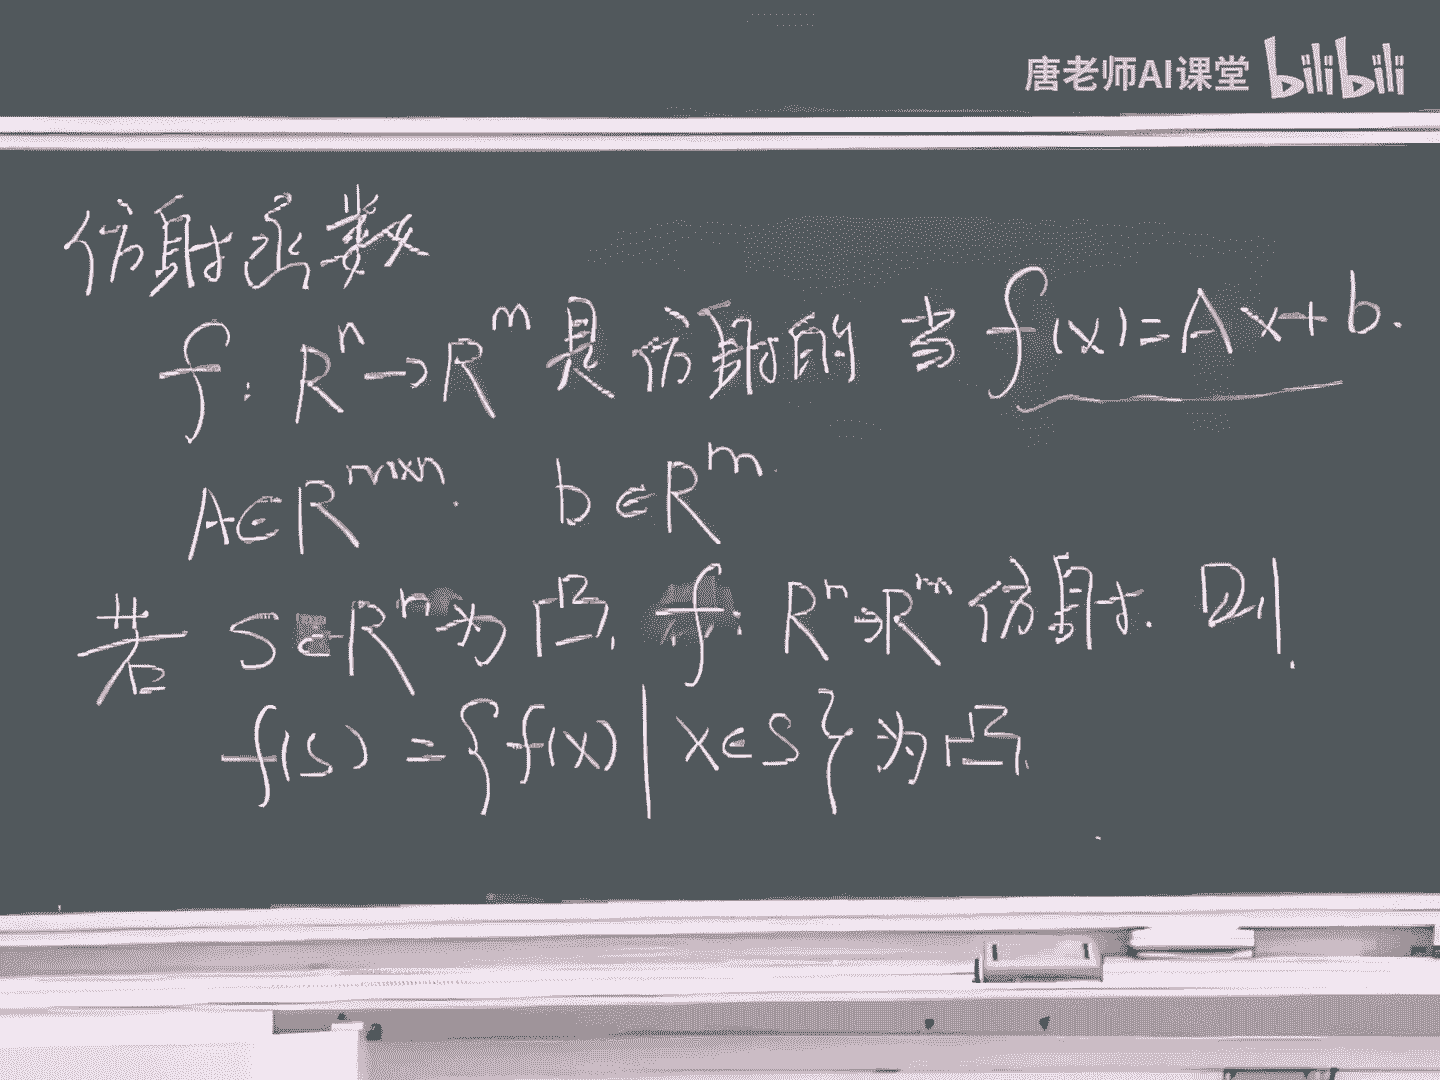 唐老师AI课堂 bilibili
仿射函数
f: Rⁿ→Rᵐ 是仿射的 当 f(x)=Ax+b.
A∈Rᵐˣⁿ. b∈Rᵐ
若 S∈Rⁿ为凸, f: Rⁿ→Rᵐ仿射. 则.
f(S) = {f(x) | x∈S} 为凸.